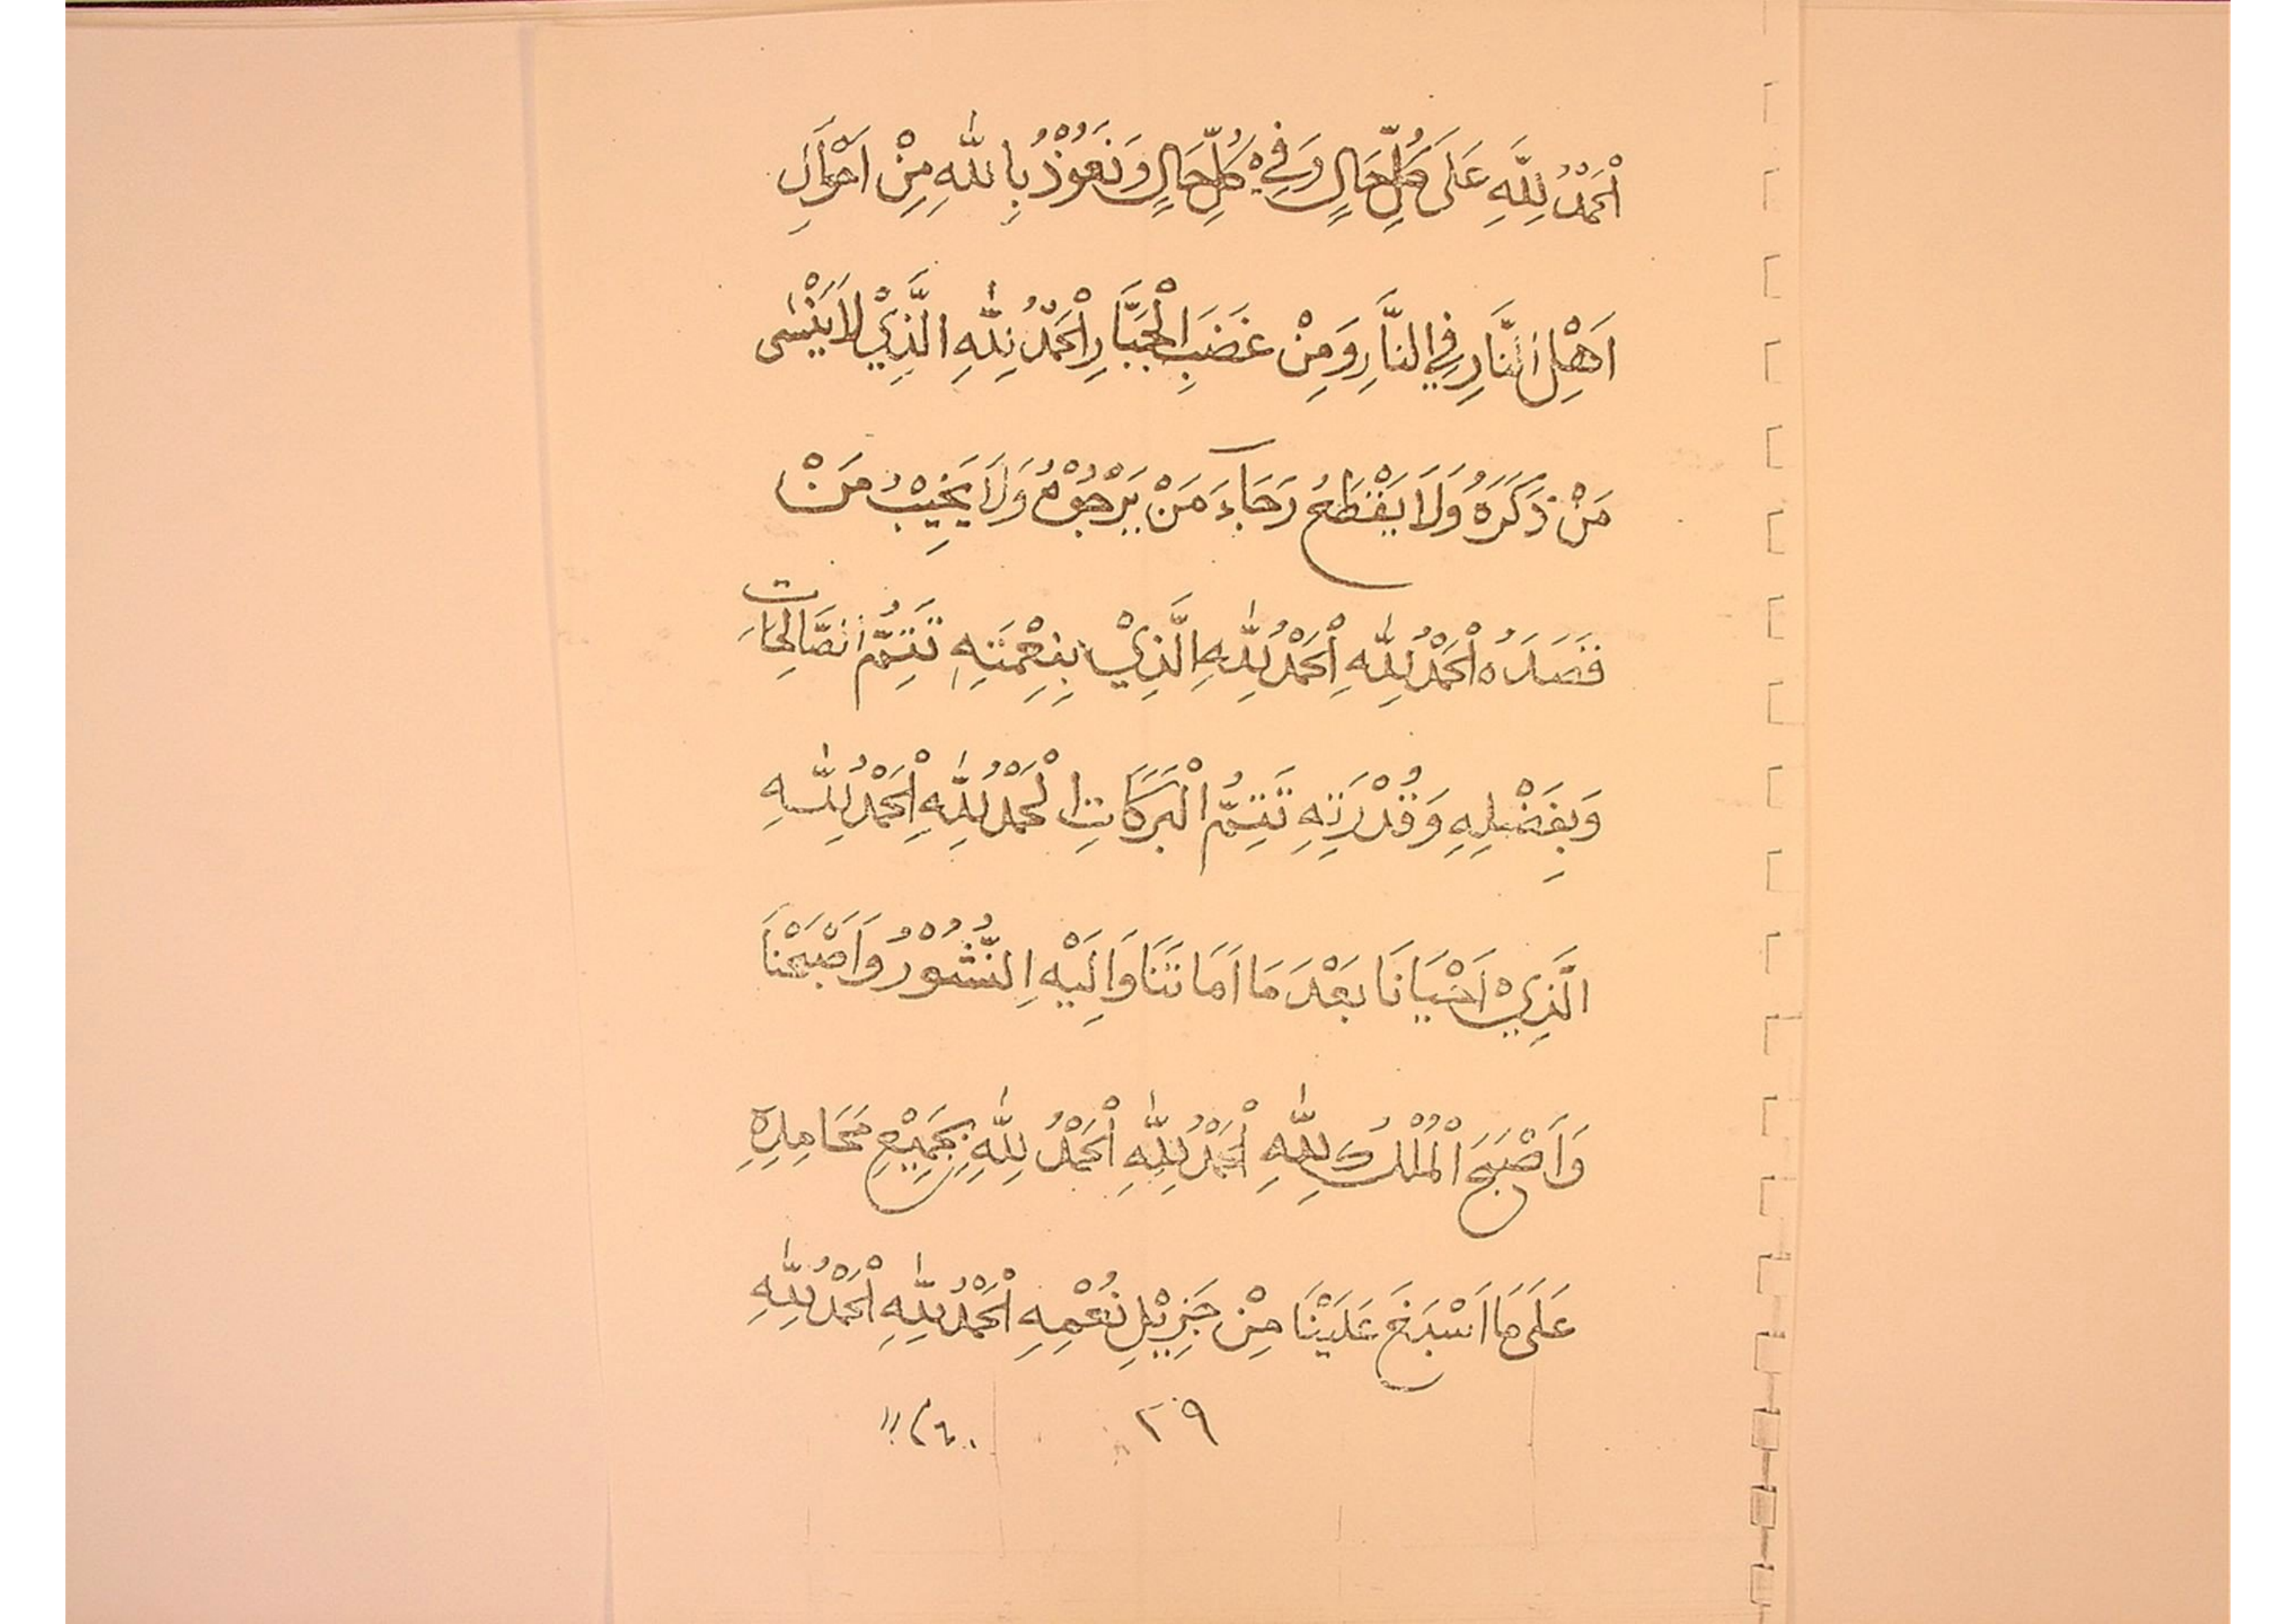 اَلْحَمْدُ لِلّٰهِ عَلَى كُلِّ حَالٍ وَفِيْ كُلِّ حَالٍ وَنَعُوْذُ بِاللّٰهِ مِنْ اَحْوَالِ
اَهْلِ النَّارِ فِي النَّارِ وَمِنْ غَضَبِ الْجَبَّارِ اَلْحَمْدُ لِلّٰهِ الَّذِيْ لَا يَنْسٰى
مَنْ ذَكَرَهُ وَلَا يَقْطَعُ رَجَاءَ مَنْ يَرْجُوْهُ وَلَا يَخِيْبُ مَنْ
قَصَدَهُ اَلْحَمْدُ لِلّٰهِ اَلْحَمْدُ لِلّٰهِ الَّذِيْ بِنِعْمَتِهِ تَتِمُّ الصَّالِحَات
وَبِفَضْلِهِ وَقُدْرَتِهِ تَتِمُّ الْبَرَكَاتِ الْحَمْدُ لِلّٰهِ اَلْحَمْدُ لِلّٰهِ
الَّذِيْ اَحْيَانَا بَعْدَ مَا اَمَاتَنَا وَاِلَيْهِ النُّشُوْرُ وَاَصْبَحْنَا
وَاَصْبَحَ الْمُلْكُ لِلّٰهِ اَلْحَمْدُ لِلّٰهِ اَلْحَمْدُ لِلّٰهِ بِجَمِيْعِ مَحَامِدِهِ
عَلَى مَا اَسْبَغَ عَلَيْنَا مِنْ جَزِيْلِ نُعْمِهِ اَلْحَمْدُ لِلّٰهِ اَلْحَمْدُ لِلّٰهِ
٢٩